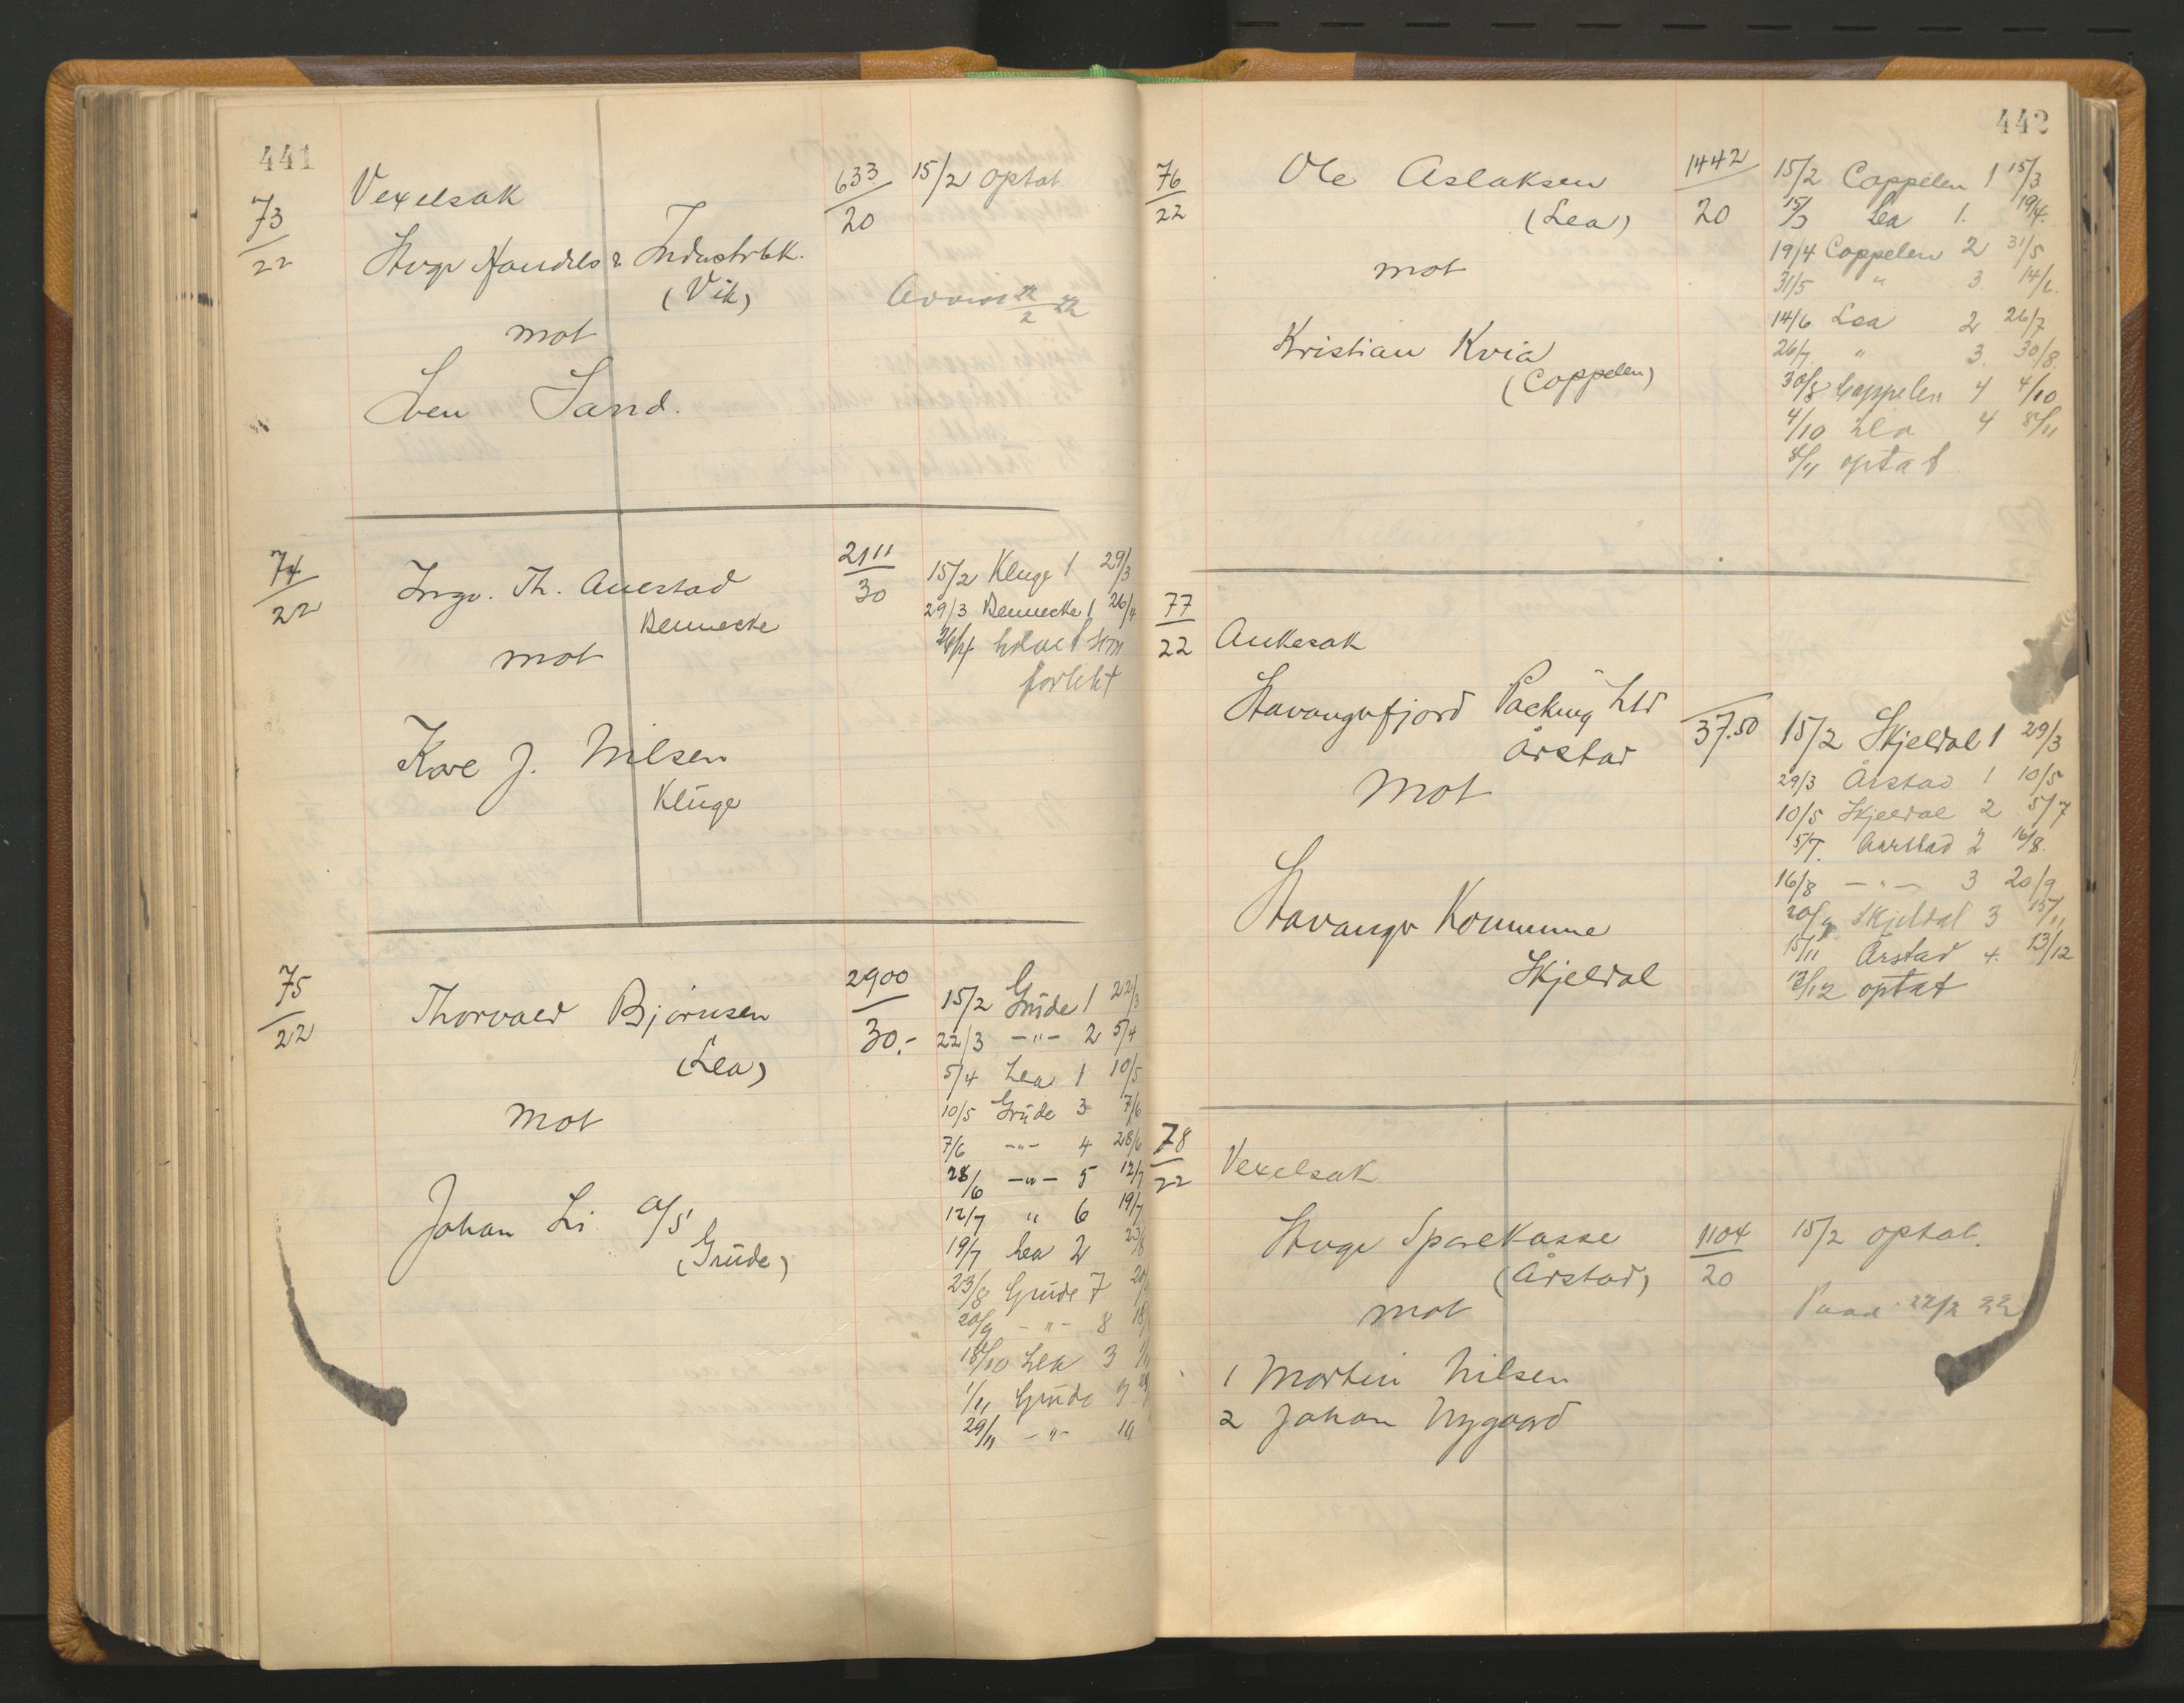 441
73
22
Vexelsak
633
20
15/2 optat.
Stvgr Handels & Industribk.
(Vik)
22
2 22
mot
Sven Sand.
74
22
Ingv. Th. Auestad
Bennecke
2111
30
15/2 Kluge 1 29/3
29/3 Bennecke 1 26/4
26/4 hævet som
forlikt
mot
Kare J. Nilsen
Kluge
75
22
Thorvald Bjørnsen
(Lea)
2900
30.-
15/2 Grude 1 22/3
22/3 -"- 2 5/4
5/4 Lea 1 10/5
10/5 Grude 3 7/6
7/6 -"- 4 28/6
28/6 -"- 5 12/7
12/7 " 6 19/7
19/7 Lea 2 23/8
23/8 Grude 7
20/9 -"- 8
18/10 Lea 3
1/11 Grude 9
29/11 -"- 10
mot
Johan Li A/S
(Grude)
442
76
22
Ole Aslaksen
(Lea)
mot
Kristian Kvia
(Coppelen)
1442
20
15/2 Coppelen 1 15/3
15/3 Lea 1. 19/4.
19/4 Coppelen 2 31/5
31/5 " 3. 14/6.
14/6 Lea 2 26/7
26/7 " 3. 30/8.
30/8 Coppelen 4 4/10
4/10 Lea 4 8/11
8/11 optat
77
22
Ankesak
Stavangerfjord Packing Ltd
Årstad
mot
Stavanger Kommune
Skjeldal
37.50
15/2 Skjeldal 1 29/3
29/3 Årstad 1 10/5
10/5 Skjeldal 2 5/7
5/7. Aarstad 2 16/8.
16/8 -"- 3 20/9
20/9 Skjeldal 3 15/11
15/11 Årstad 4. 13/12
13/12 optat
78
22
Vexelsak
Stvgr Sparekasse
(Årstad)
1104
20
15/2 optat.
22/2 22
mot
1 Martin Nilsen
2 Johan Nygaard